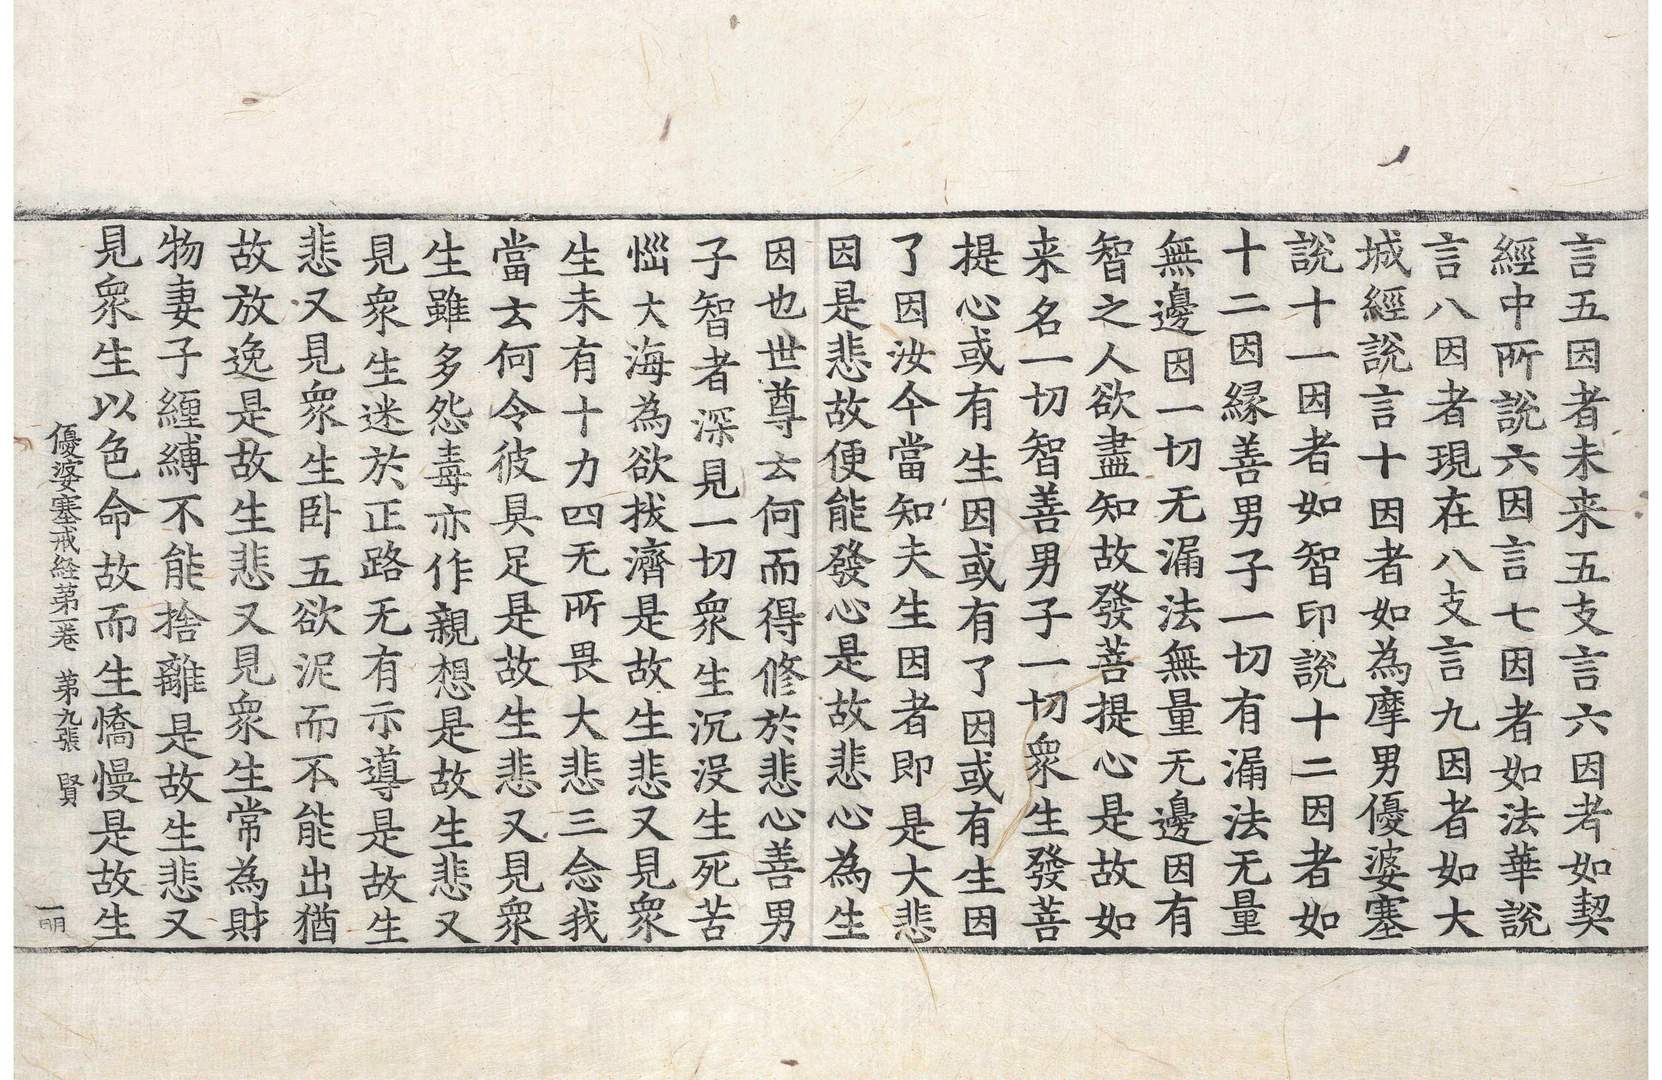 言五因者未来五支言六因者如契
經中所說六因言七因者如法華說
言八因者現在八支言九因者如大
城經說言十因者如為摩男優婆塞
說十一因者如智印說十二因者如
十二因縁善男子一切有漏法无量
無邊因一切无漏法無量无邊因有
智之人欲盡知故發菩提心是故如
来名一切智善男子一切衆生發菩
提心或有生因或有了因或有生因
了因汝今當知夫生因者即是大悲
因是悲故便能發心是故悲心為生
因也世尊云何而得修於悲心善男
子智者深見一切衆生沉没生死苦
惱大海為欲拔濟是故生悲又見衆
生未有十力四无所畏大悲三念我
當云何令彼具足是故生悲又見衆
生雖多怨毒亦作親想是故生悲又
見衆生迷於正路无有示導是故生
悲又見衆生卧五欲泥而不能出猶
故放逸是故生悲又見衆生常為財
物妻子纏縛不能捨離是故生悲又
見衆生以色命故而生憍慢是故生
優婆塞戒経第一卷 第九張 賢
一明